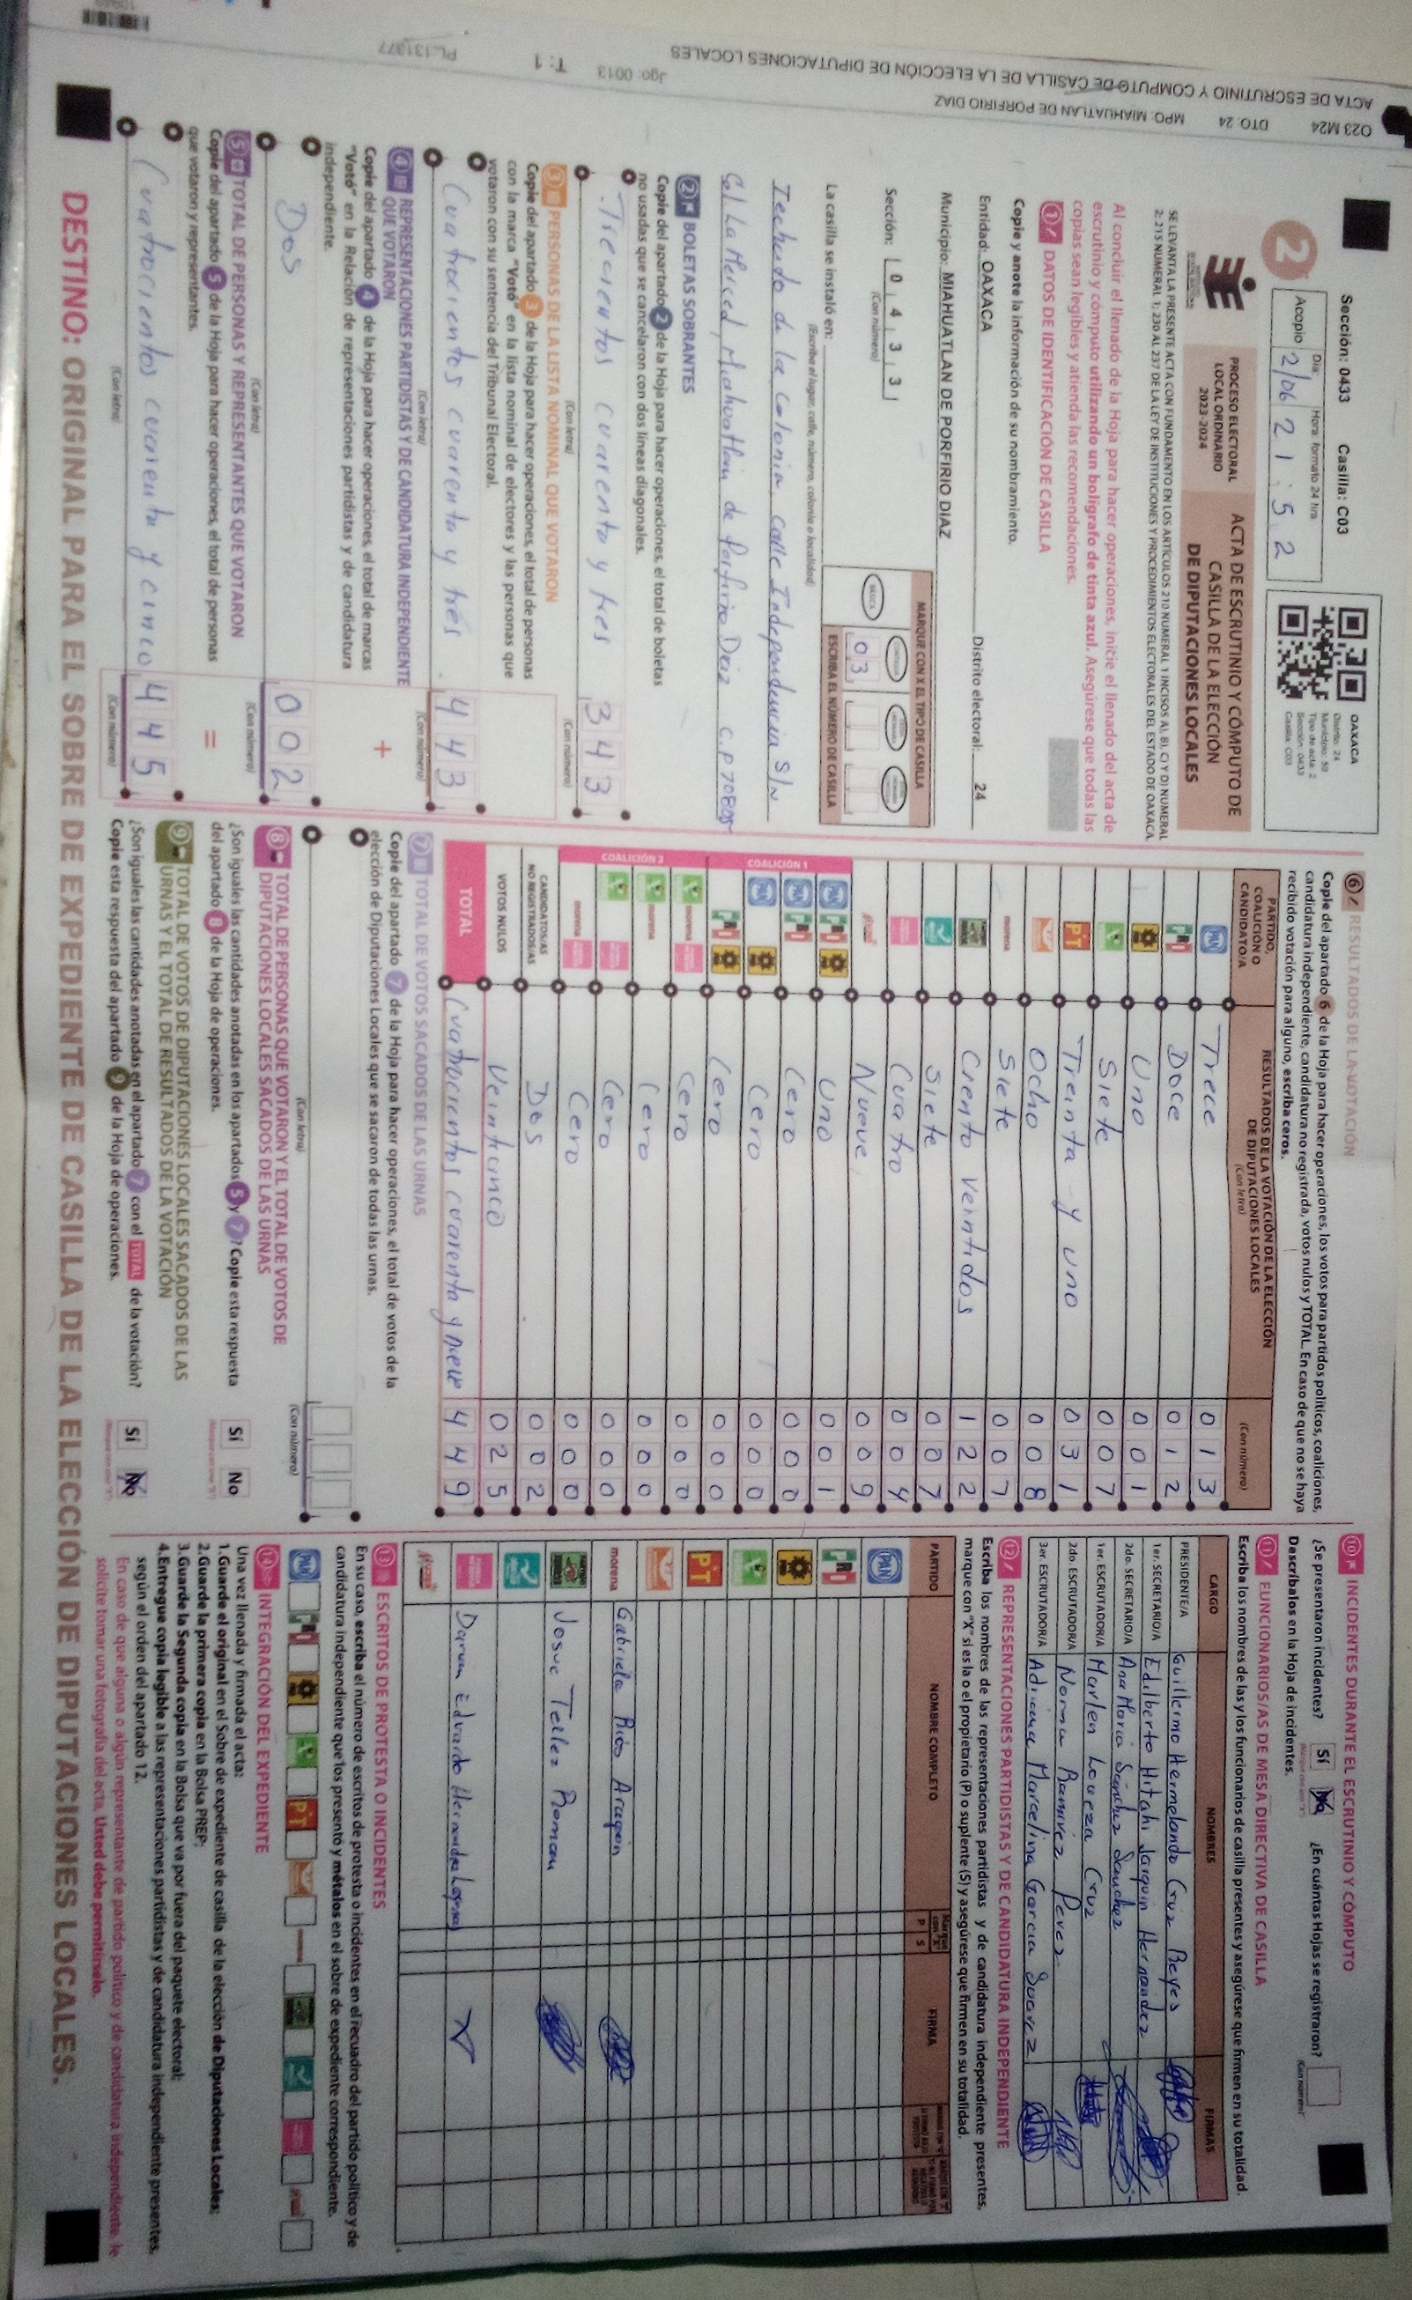 O23 M24 DTO. 24 MPO. MIAHUATLAN DE PORFIRIO DIAZ
ACTA DE ESCRUTINIO Y COMPUTO DE CASILLA DE LA ELECCIÓN DE DIPUTACIONES LOCALES
Jgo: 0013 T: 1 PL:131377
Sección: 0433 Casilla: C03
2
Día: Hora: formato 24 hrs
Acopio 2/06 21:52
OAXACA
Distrito: 24
Municipio: 59
Tipo de acta: 2
Sección: 0433
Casilla: C03
PROCESO ELECTORAL
LOCAL ORDINARIO
2023-2024
ACTA DE ESCRUTINIO Y CÓMPUTO DE
CASILLA DE LA ELECCIÓN
DE DIPUTACIONES LOCALES
SE LEVANTA LA PRESENTE ACTA CON FUNDAMENTO EN LOS ARTÍCULOS 210 NUMERAL 1 INCISOS A), B), C) Y D) NUMERAL
2; 215 NUMERAL 1; 230 AL 237 DE LA LEY DE INSTITUCIONES Y PROCEDIMIENTOS ELECTORALES DEL ESTADO DE OAXACA.
Al concluir el llenado de la Hoja para hacer operaciones, inicie el llenado del acta de
escrutinio y cómputo utilizando un bolígrafo de tinta azul. Asegúrese que todas las
copias sean legibles y atienda las recomendaciones.
1 DATOS DE IDENTIFICACIÓN DE CASILLA
Copie y anote la información de su nombramiento.
Entidad: OAXACA Distrito electoral: 24
Municipio: MIAHUATLAN DE PORFIRIO DIAZ
Sección: 0 4 3 3
(Con número)
MARQUE CON X EL TIPO DE CASILLA
BÁSICA
03
ESCRIBA EL NÚMERO DE CASILLA
(Escriba el lugar, calle, número, colonia o localidad)
La casilla se instaló en:
Techado de la Colonia, calle Independencia S/N
Col. La Merced, Miahuatlán de Porfirio Díaz C.P 70805
2 BOLETAS SOBRANTES
Copie del apartado 2 de la Hoja para hacer operaciones, el total de boletas
no usadas que se cancelaron con dos líneas diagonales.
Trecientos cuarenta y tres 343
(Con letra) (Con número)
3 PERSONAS DE LA LISTA NOMINAL QUE VOTARON
Copie del apartado 3 de la Hoja para hacer operaciones, el total de personas
con la marca "Votó" en la lista nominal de electores y las personas que
votaron con su sentencia del Tribunal Electoral.
Cuatrocientos cuarenta y tres. 443
(Con letra) (Con número)
4 REPRESENTACIONES PARTIDISTAS Y DE CANDIDATURA INDEPENDIENTE
QUE VOTARON
Copie del apartado 4 de la Hoja para hacer operaciones, el total de marcas
"Votó" en la Relación de representaciones partidistas y de candidatura
independiente.
+
Dos 002
(Con letra) (Con número)
5 TOTAL DE PERSONAS Y REPRESENTANTES QUE VOTARON
Copie del apartado 5 de la Hoja para hacer operaciones, el total de personas
que votaron y representantes.
=
Cuatrocientos cuarenta y cinco 445
(Con letra) (Con número)
6 RESULTADOS DE LA VOTACIÓN
Copie del apartado 6 de la Hoja para hacer operaciones, los votos para partidos políticos, coaliciones,
candidatura independiente, candidatura no registrada, votos nulos y TOTAL. En caso de que no se haya
recibido votación para alguno, escriba ceros.
PARTIDO, COALICIÓN O CANDIDATO/A RESULTADOS DE LA VOTACIÓN DE LA ELECCIÓN DE DIPUTACIONES LOCALES
(Con letra) (Con número)
PAN Trece 013
PRI Doce 012
Uno 001
Siete 007
PT Treinta y uno 031
Ocho 008
morena Siete 007
Ciento veintidos 122
Siete 007
Cuatro 004
Nueve 009
COALICIÓN 1
PAN PRI Uno 001
PAN PRI Cero 000
PAN Cero 000
PRI Cero 000
COALICIÓN 2
morena Cero 000
morena Cero 000
Cero 000
morena Cero 000
CANDIDATOS/AS NO REGISTRADOS/AS Dos 002
VOTOS NULOS Veinticinco 025
TOTAL Cuatrocientos cuarenta y nueve 449
7 TOTAL DE VOTOS SACADOS DE LAS URNAS
Copie del apartado 7 de la Hoja para hacer operaciones, el total de votos de la
elección de Diputaciones Locales que se sacaron de todas las urnas.
(Con letra) (Con número)
8 TOTAL DE PERSONAS QUE VOTARON Y EL TOTAL DE VOTOS DE
DIPUTACIONES LOCALES SACADOS DE LAS URNAS
¿Son iguales las cantidades anotadas en los apartados 5 y 7? Copie esta respuesta
del apartado 8 de la Hoja de operaciones.
Sí No
9 TOTAL DE VOTOS DE DIPUTACIONES LOCALES SACADOS DE LAS
URNAS Y EL TOTAL DE RESULTADOS DE LA VOTACIÓN
¿Son iguales las cantidades anotadas en el apartado 7 con el TOTAL de la votación?
Copie esta respuesta del apartado 9 de la Hoja de operaciones.
Sí No
10 INCIDENTES DURANTE EL ESCRUTINIO Y CÓMPUTO
¿Se presentaron incidentes? Sí No ¿En cuántas Hojas se registraron?
(Con número)
Descríbalos en la Hoja de incidentes.
11 FUNCIONARIOS/AS DE MESA DIRECTIVA DE CASILLA
Escriba los nombres de las y los funcionarios de casilla presentes y asegúrese que firmen en su totalidad.
CARGO NOMBRES FIRMAS
PRESIDENTE/A Guillermo Hermelando Cruz Reyes
1er. SECRETARIO/A Edilberto Hitahi Jarquin Hernandez
2do. SECRETARIO/A Ana Maria Sánchez Sanchez
1er. ESCRUTADOR/A Marlen Loaeza Cruz
2do ESCRUTADOR/A Norma Ramirez Perez
3er. ESCRUTADOR/A Adriana Marcelina Garcia Suarez
12 REPRESENTACIONES PARTIDISTAS Y DE CANDIDATURA INDEPENDIENTE
Escriba los nombres de las representaciones partidistas y de candidatura independiente presentes,
marque con "X" si es la o el propietario (P) o suplente (S) y asegúrese que firmen en su totalidad.
PARTIDO NOMBRE COMPLETO P S FIRMA
PAN
PRI
PT
morena Gabriela Rios Aragón
Josue Tellez Roman
Darwin Eduardo Hernandez
13 ESCRITOS DE PROTESTA O INCIDENTES
En su caso, escriba el número de escritos de protesta o incidentes en el recuadro del partido político y de
candidatura independiente que los presentó y métalos en el sobre de expediente correspondiente.
PAN PRI PT
14 INTEGRACIÓN DEL EXPEDIENTE
Una vez llenada y firmada el acta:
1.Guarde el original en el Sobre de expediente de casilla de la elección de Diputaciones Locales;
2.Guarde la primera copia en la Bolsa PREP;
3.Guarde la Segunda copia en la Bolsa que va por fuera del paquete electoral;
4.Entregue copia legible a las representaciones partidistas y de candidatura independiente presentes,
según el orden del apartado 12.
En caso de que alguna o algún representante de partido político y de candidatura independiente, le
solicite tomar una fotografía del acta, Usted debe permitírselo.
DESTINO: ORIGINAL PARA EL SOBRE DE EXPEDIENTE DE CASILLA DE LA ELECCIÓN DE DIPUTACIONES LOCALES.